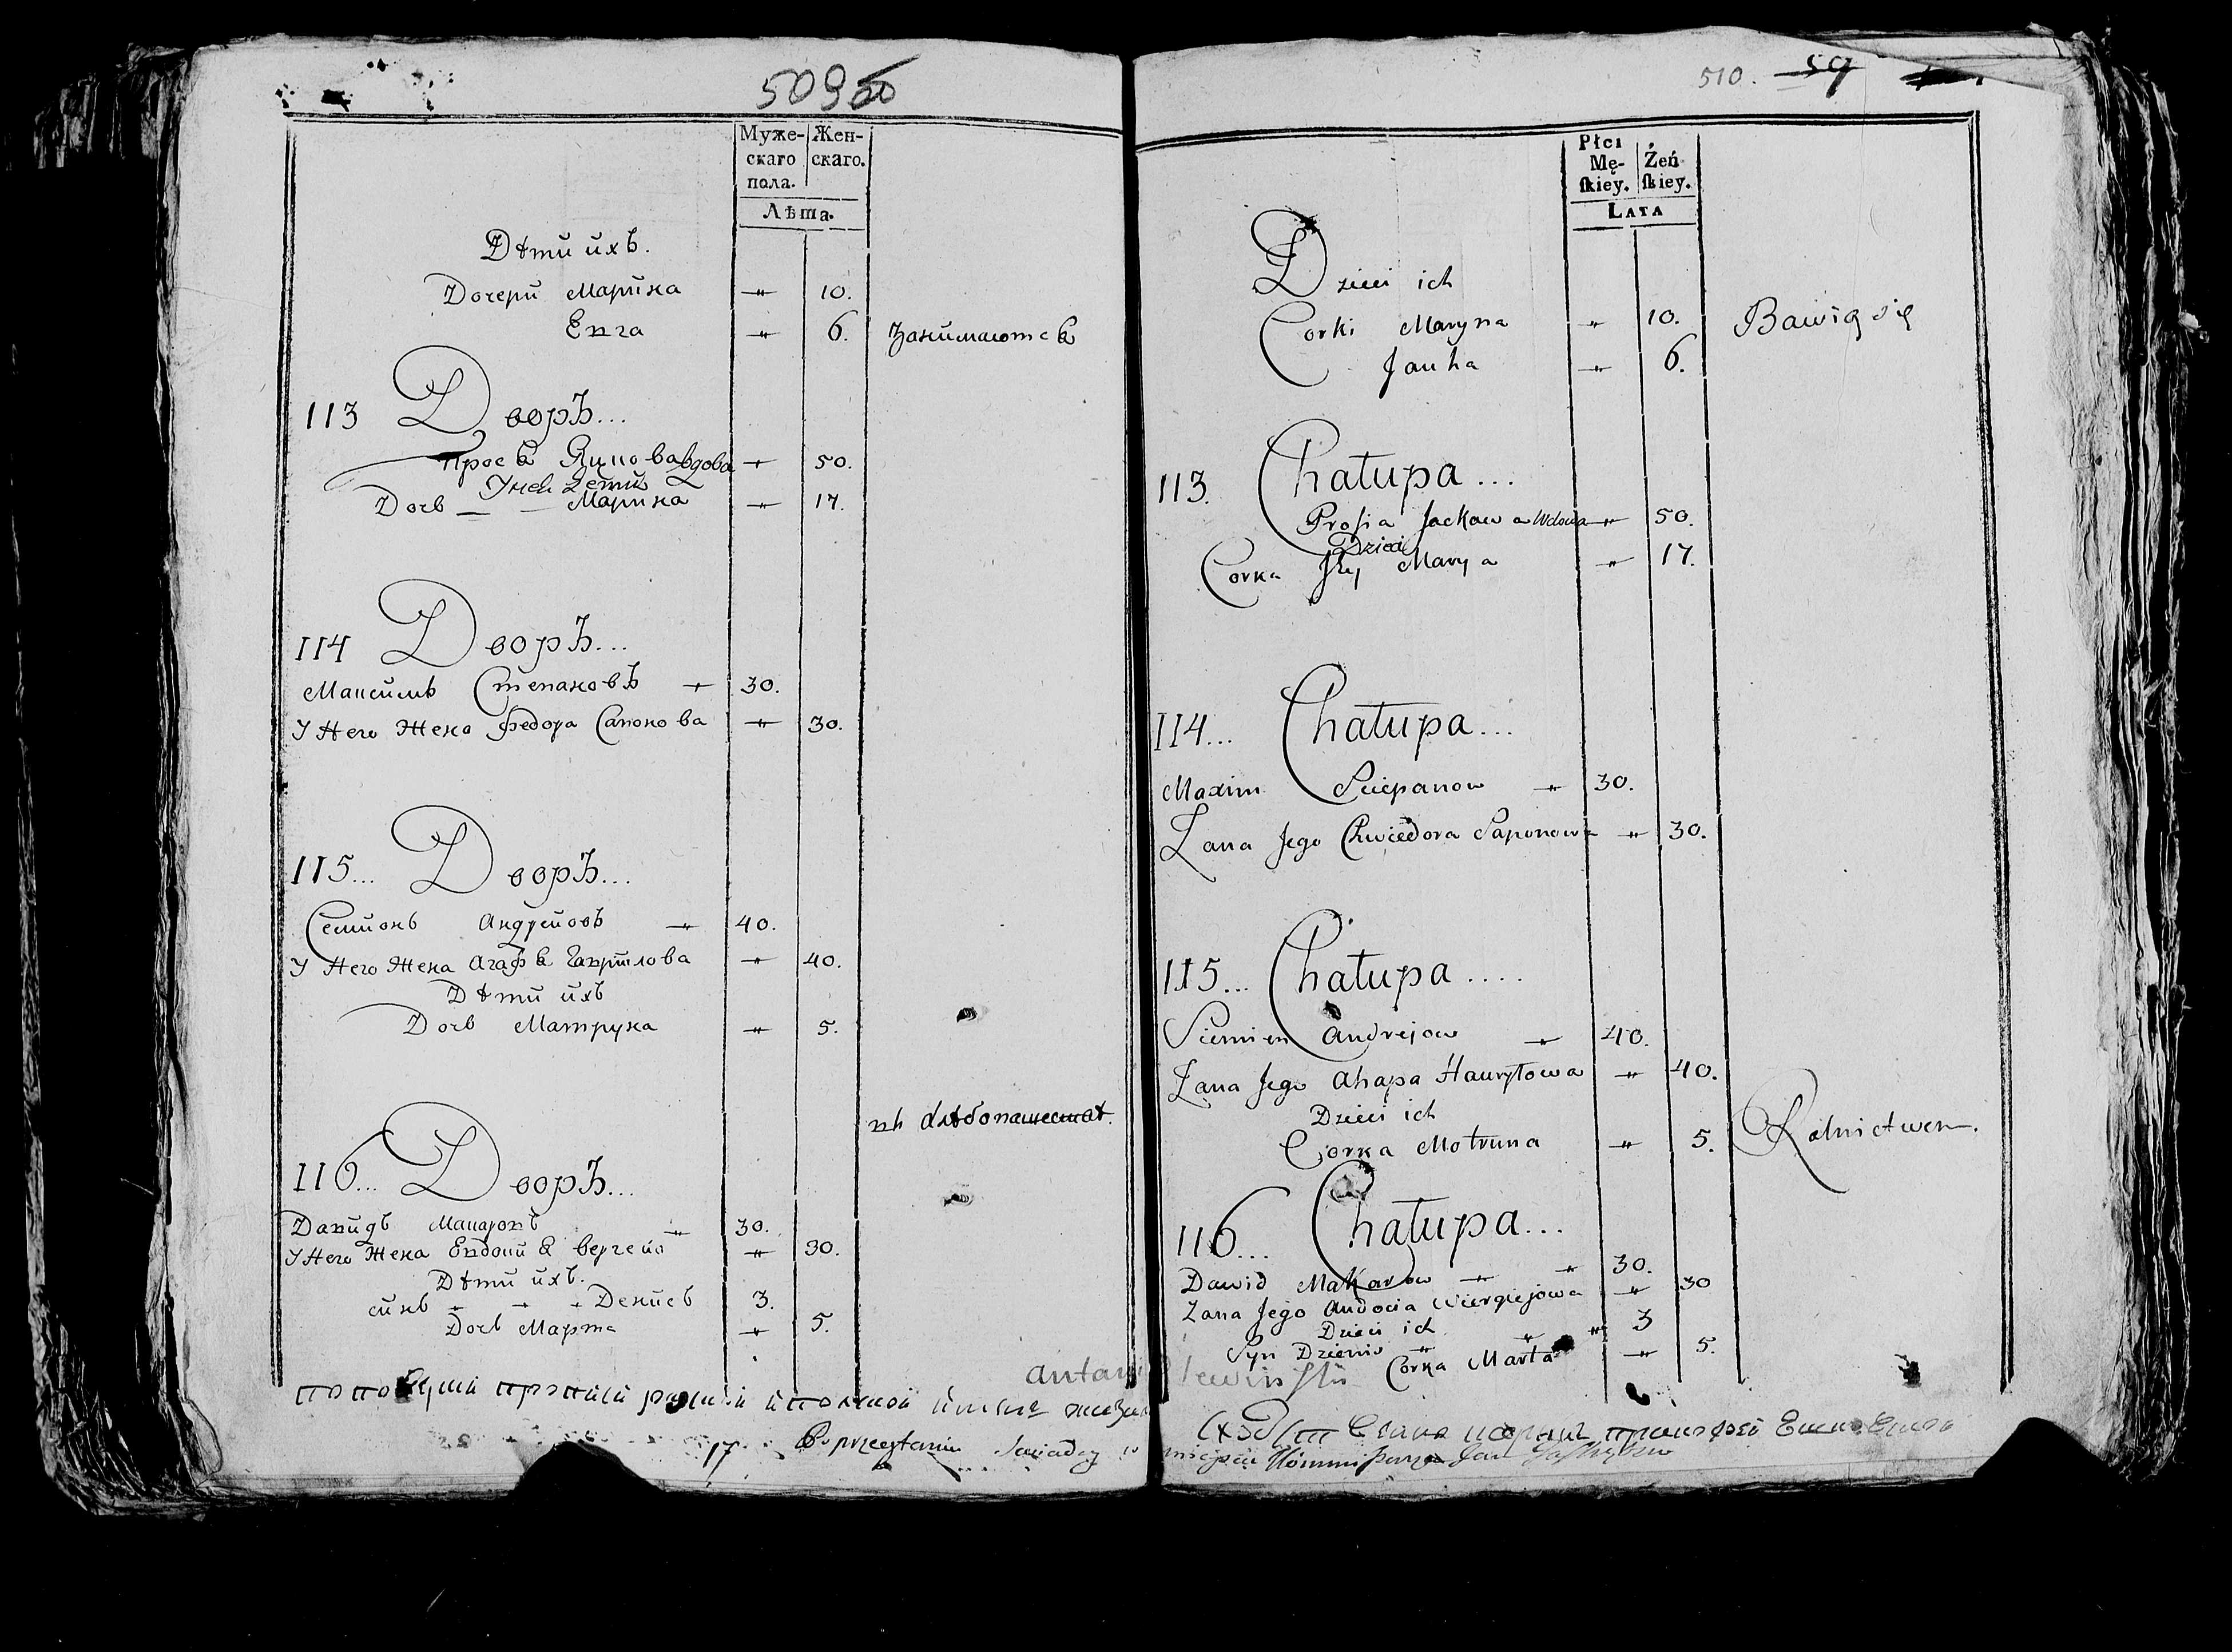 509
Муже- Жен-
скаго скаго.
пола.
Лѣта.
Дѣти ихъ.
Дочери Марина " 10.
Евга " 6. Занимаются
113 Дворъ...
Прося Яцкова вдова " 50.
У нея Дети
Дочь Марина " 17.
114 Дворъ...
Максимъ Степановъ " 30.
У Него Жена Федора Сапонова " 30.
115... Дворъ...
Семионъ Андреиовъ " 40.
У Него Жена Агафя Гаврилова " 40.
Дѣти ихъ
Дочь Матруна " 5.
хлѣбопашест.
116... Дворъ...
Давидъ Макаровъ " 30.
У Него Жена Евдокия " 30.
Дѣти ихъ.
синъ " " " Денисъ 3.
Дочь Марта " 5.
17 Po przeczytaniu
510. 59
Płci
Mę- Żeń
ſkiey. ſkiey.
Lata
Dzieci ich
Corki Maryna " 10. Bawią się
Jauha " 6.
113. Chałupa...
Prosia Jackowa Wdowa " 50.
Dzieci
Corka Jey Marya " 17.
114... Chałupa...
Maxim Sciepanow " 30.
Żana Jego Chwiedora Saponowa " 30.
115... Chałupa....
Siemien Andrejow " 40.
Żana Jego Ahapa Hauryłowa " 40.
Dzieci ich
Corka Motruna " 5. Rolnictwem.
116... Chałupa...
Dawid Makarow " " 30.
Żana Jego Audocia Wiergiejowa " 30
Dzieci ich
Syn Dzienis " " 3
Corka Marta " 5.